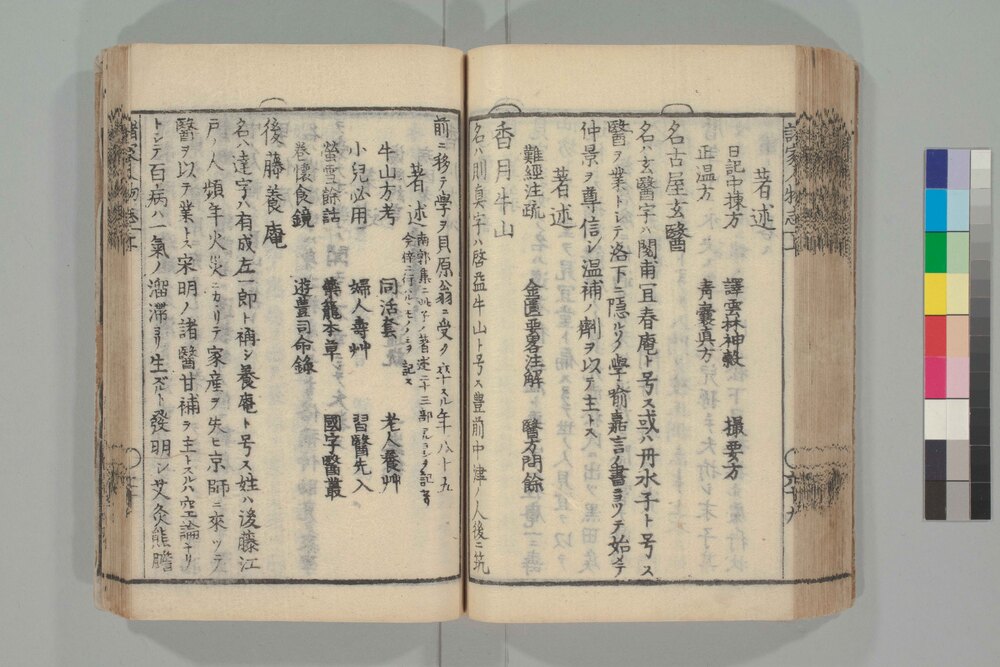 著述
日記中揀方 譯雲林神彀 撮要方
正温方 青嚢真方
名古屋玄醫
名ハ玄醫字ハ閲甫冝春庵ト号ス或ハ丹水子ト号ス
醫ヲ業トシテ洛下ニ隠ル學喻嘉言ノ書ニヨツテ始メテ
仲景ヲ尊信シ温補ノ剤ヲ以テ主トス
著述
難經注疏 金匱要畧注解 醫方問餘
香月牛山
名ハ則真字ハ啓益牛山ト号ス豊前中津ノ人後ニ筑
前ニ移テ學ヲ貝原翁ニ受ク 年八十五
著述
牛山方考 同活套 老人養艸
小兒必用 婦人壽艸 習醫先入
螢雪餘話 藥籠本草 國字醫叢
巻懐食鏡 遊豊司命錄
後藤養庵
名ハ達字ハ有成左一郎ト補シ養庵ト号ス姓ハ後藤江
戸ノ人頻年火災ニカヽリテ家産ヲ失ヒ京師ニ來ツテ
醫ヲ以テ業トス宋明ノ諸醫甘補ヲ主トスルハ空論ナリ
トシテ百病ハ一氣ノ溜滞ヨリ生ズルト發明シ艾灸熊膽